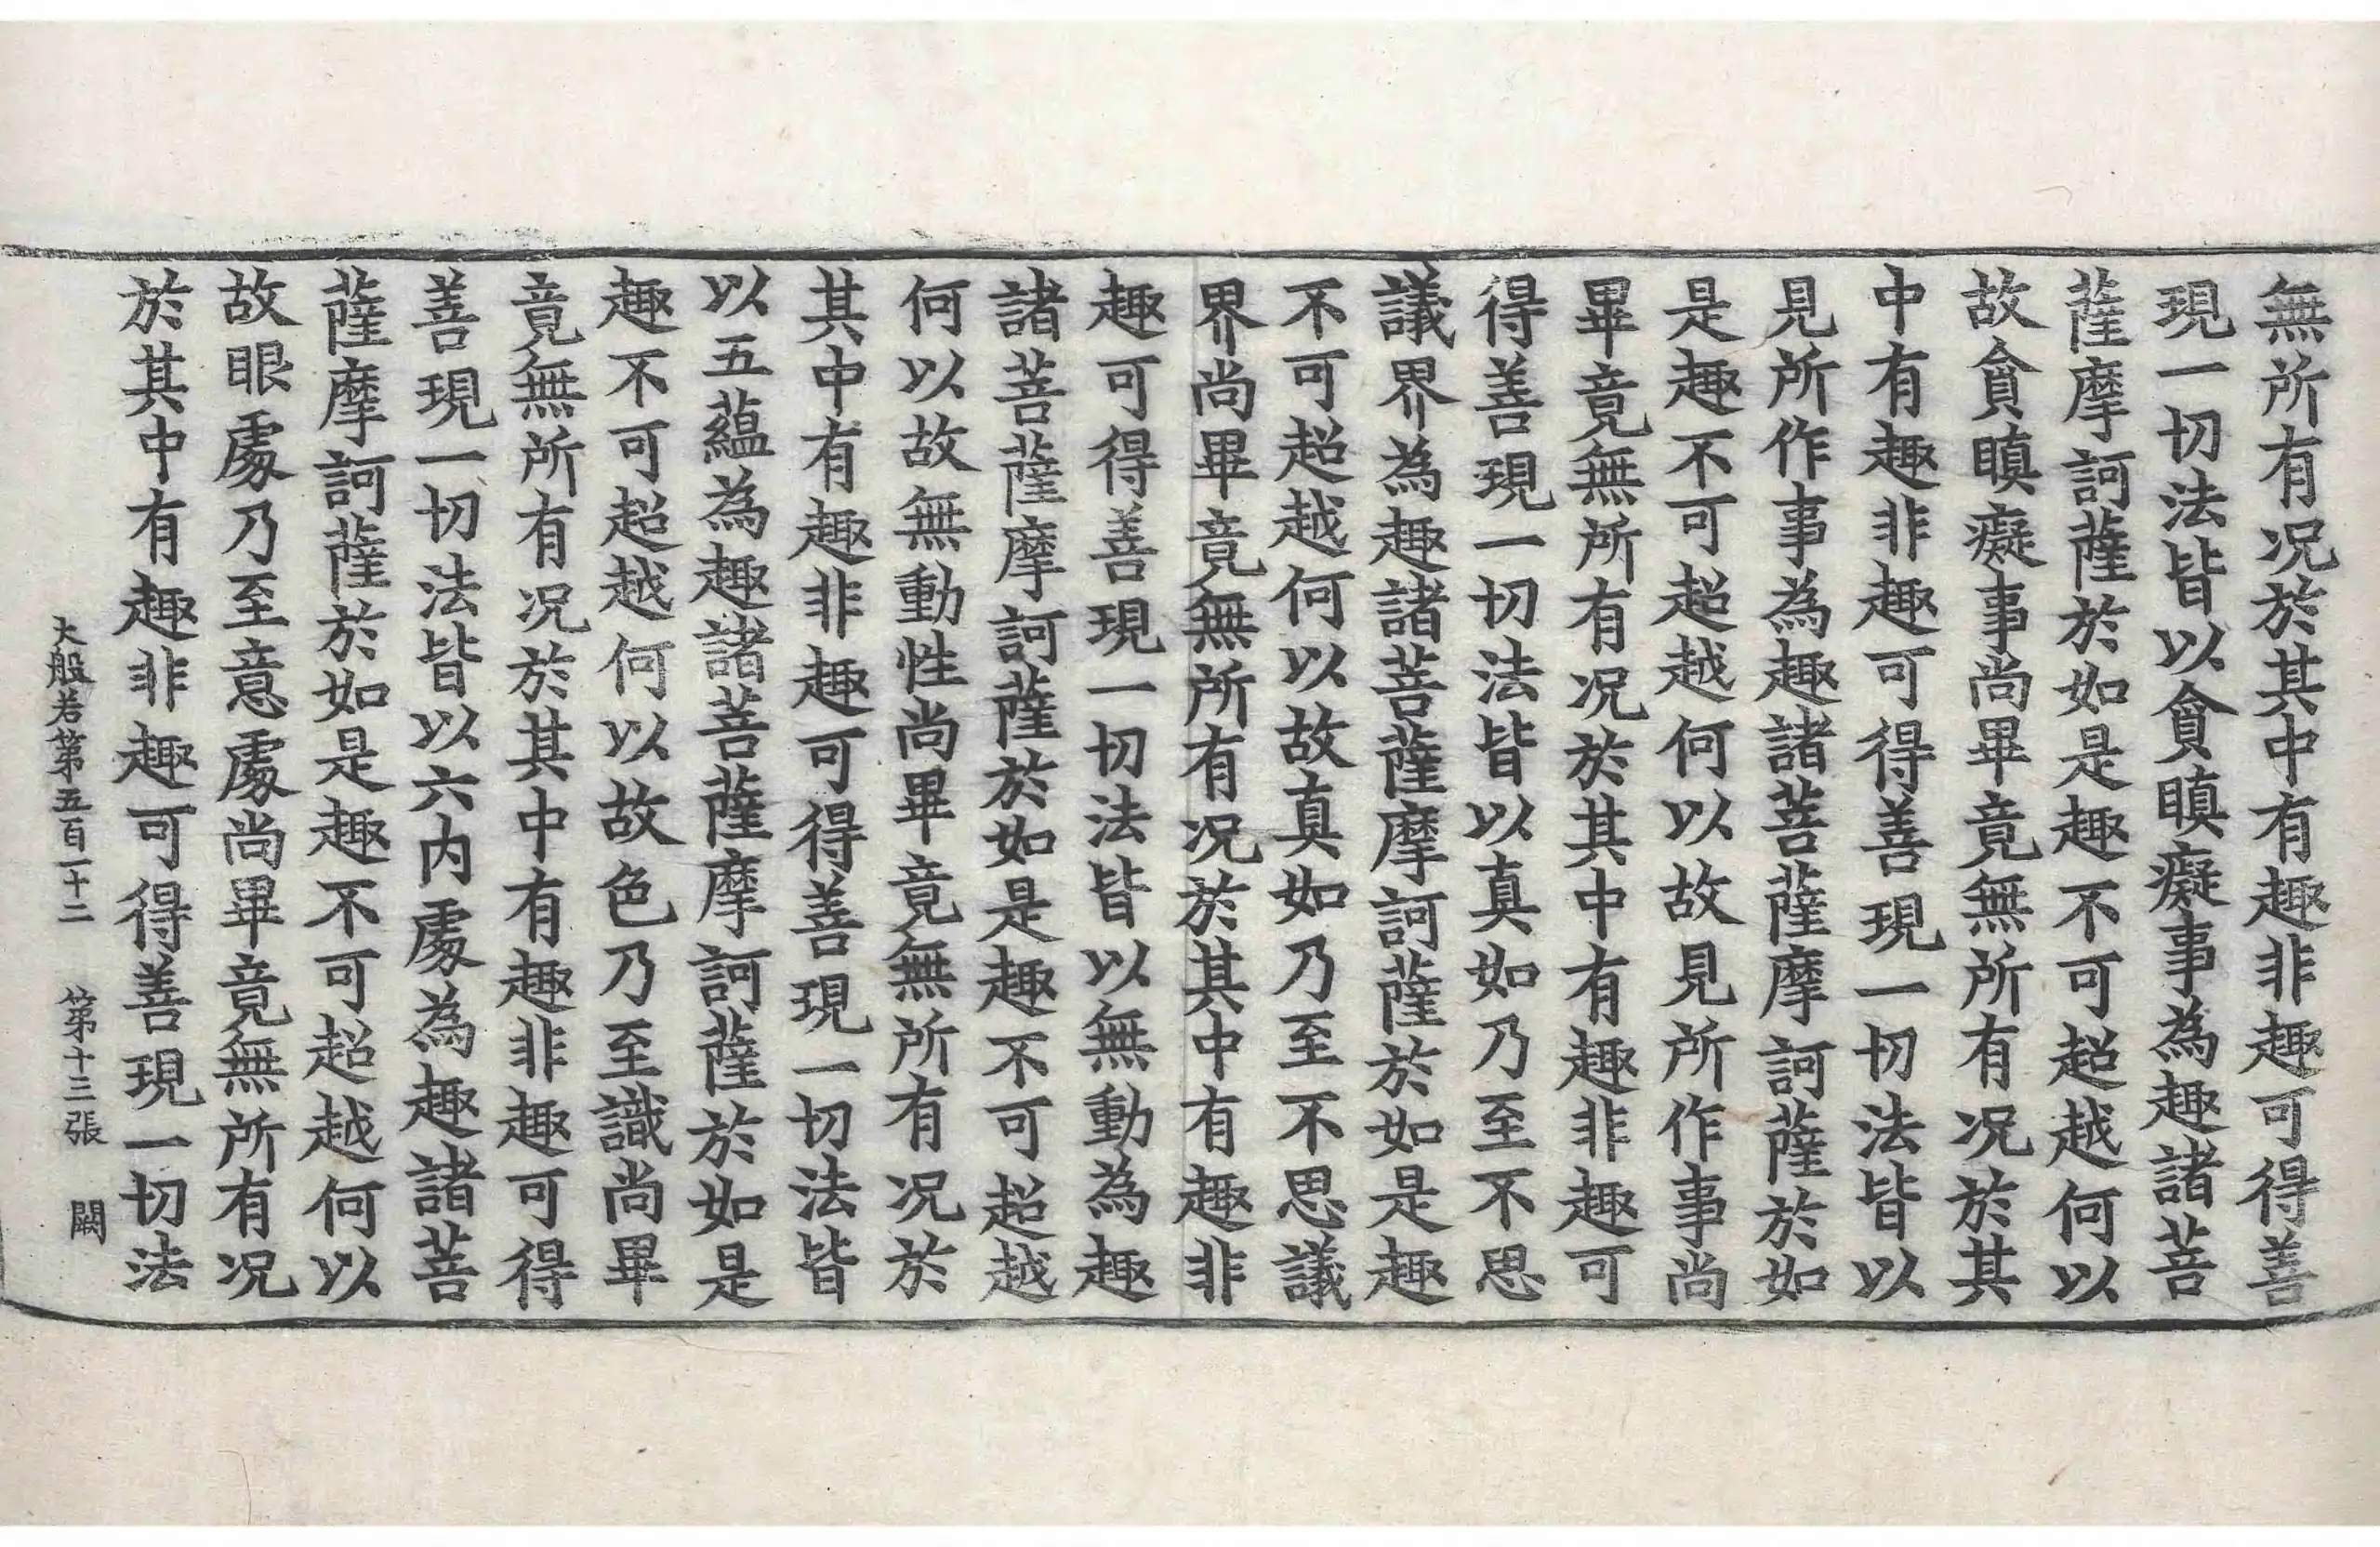 無所有况於其中有趣非趣可得善
現一切法皆以貪瞋癡事為趣諸菩
薩摩訶薩於如是趣不可超越何以
故貪瞋癡事尚畢竟無所有况於其
中有趣非趣可得善現一切法皆以
見所作事為趣諸菩薩摩訶薩於如
是趣不可超越何以故見所作事尚
畢竟無所有况於其中有趣非趣可
得善現一切法皆以真如乃至不思
議界為趣諸菩薩摩訶薩於如是趣
不可超越何以故真如乃至不思議
界尚畢竟無所有况於其中有趣非
趣可得善現一切法皆以無動為趣
諸菩薩摩訶薩於如是趣不可超越
何以故無動性尚畢竟無所有况於
其中有趣非趣可得善現一切法皆
以五蘊為趣諸菩薩摩訶薩於如是
趣不可超越何以故色乃至識尚畢
竟無所有况於其中有趣非趣可得
善現一切法皆以六内處為趣諸菩
薩摩訶薩於如是趣不可超越何以
故眼處乃至意處尚畢竟無所有况
於其中有趣非趣可得善現一切法
大般若第五百一十二 第十三張 闕